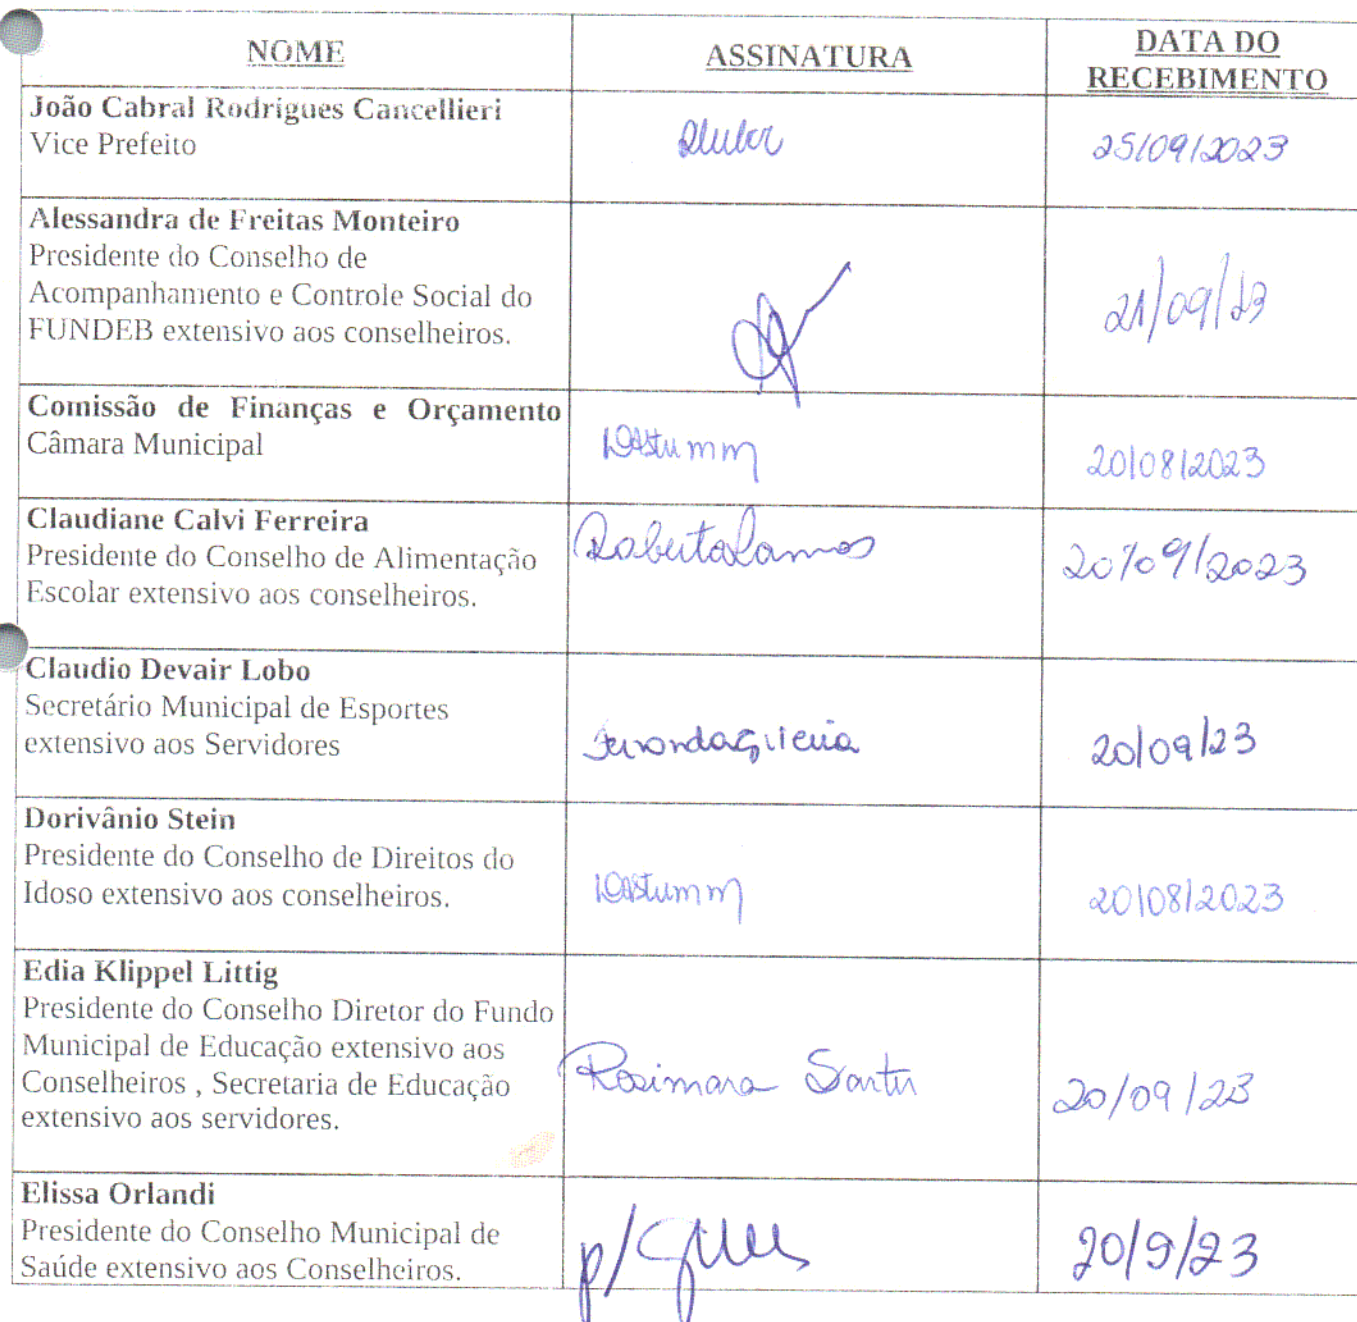 NOME
ASSINATURA
DATA DO
RECEBIMENTO
João Cabral Rodrigues Cancellieri
Vice Prefeito
25/09/2023
Alessandra de Freitas Monteiro
Presidente do Conselho de
Acompanhamento e Controle Social do
FUNDEB extensivo aos conselheiros.
21/09/23
Comissão de Finanças e Orçamento
Câmara Municipal
20/08/2023
Claudiane Calvi Ferreira
Presidente do Conselho de Alimentação
Escolar extensivo aos conselheiros.
Roberta Ramos
20/09/2023
Claudio Devair Lobo
Secretário Municipal de Esportes
extensivo aos Servidores
20/09/23
Dorivânio Stein
Presidente do Conselho de Direitos do
Idoso extensivo aos conselheiros.
20/08/2023
Edia Klippel Littig
Presidente do Conselho Diretor do Fundo
Municipal de Educação extensivo aos
Conselheiros , Secretaria de Educação
extensivo aos servidores.
Rosimara
20/09/23
Elissa Orlandi
Presidente do Conselho Municipal de
Saúde extensivo aos Conselheiros.
p/
20/9/23